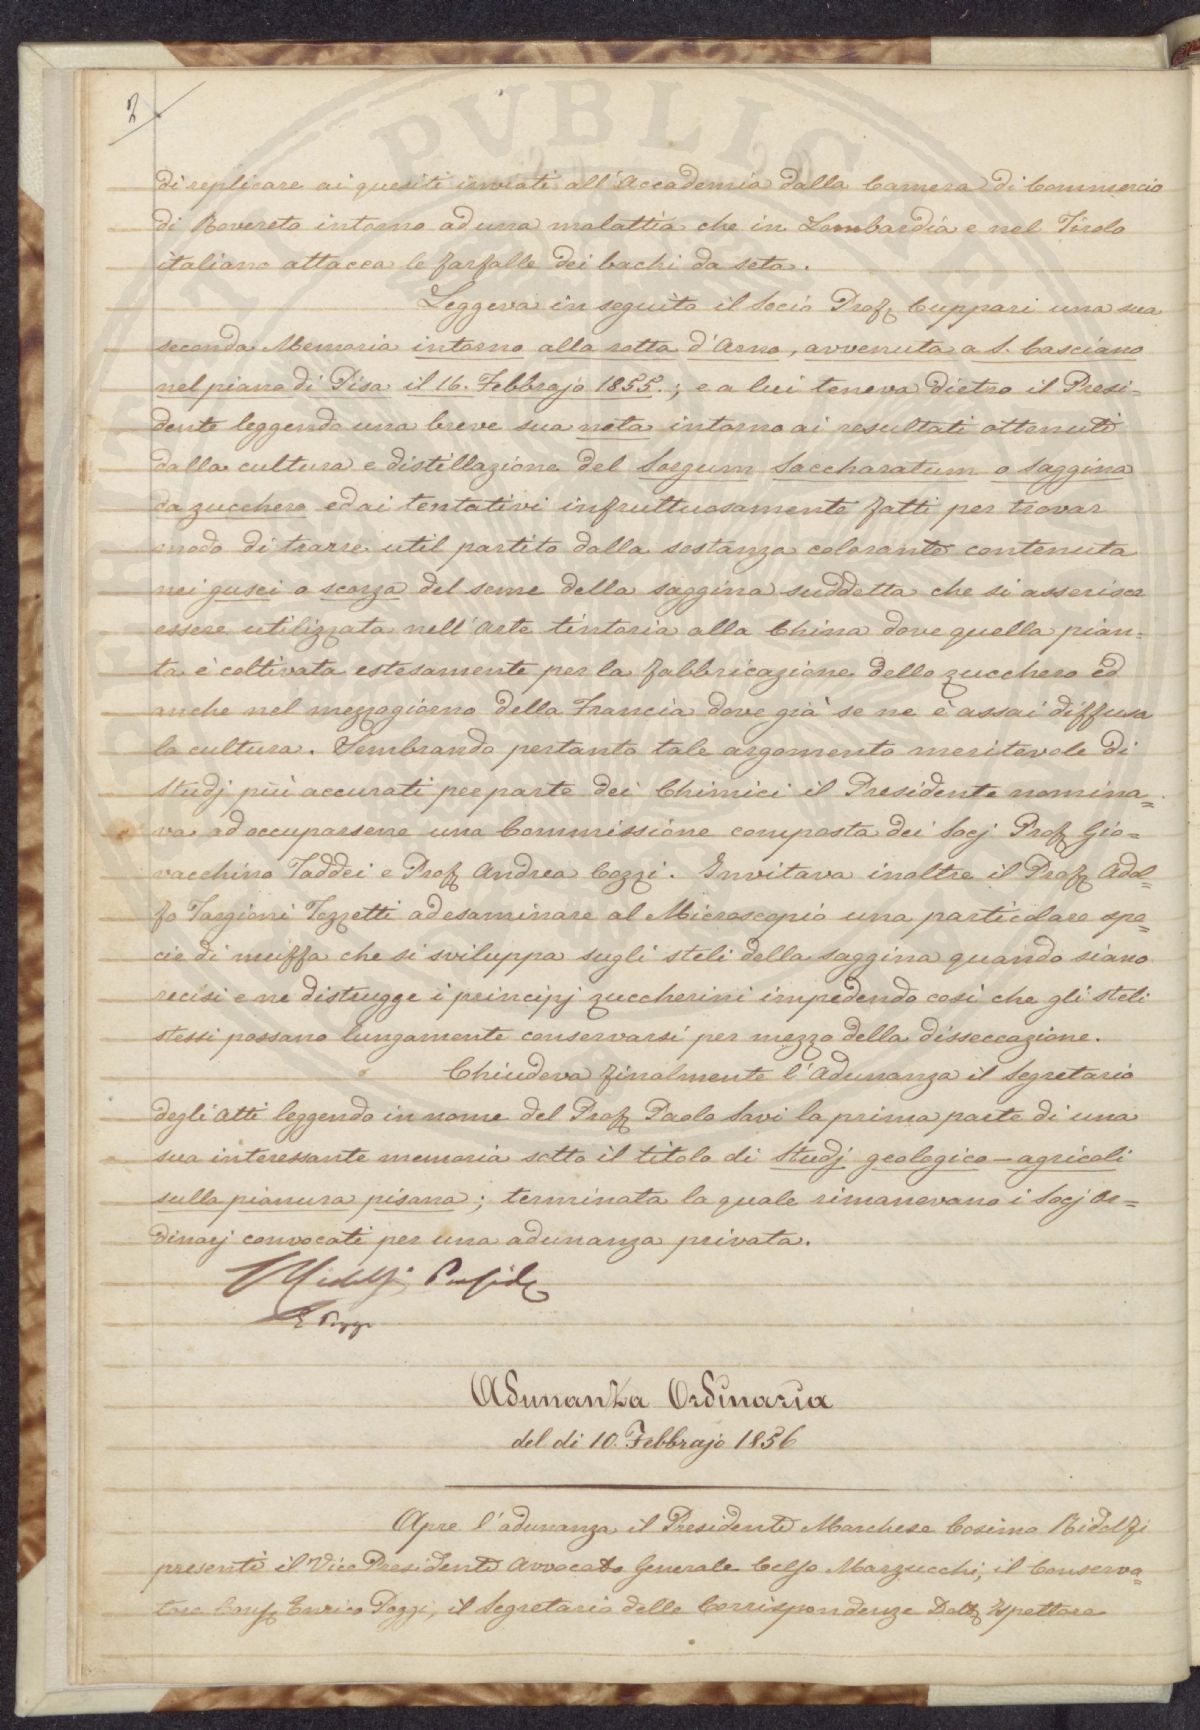 2
di replicare ai quesiti inviati all'Accademia dalla Camera di Commercio
di Rovereto intorno ad una malattia che in Lombardia e nel Tirolo
italiano attacca le farfalle dei bachi da seta.
Leggeva in seguito il Socio Prof. Cuppari una sua
seconda Memoria intorno alla rotta d'Arno, avvenuta a S. Casciano
nel piano di Pisa il 16. Febbrajo 1855.; e a lui teneva dietro il Presi=
dente leggendo una breve sua nota intorno ai resultati ottenuti
dalla cultura e distillazione del Sorgum Saccharatum o saggina
da zucchero ed ai tentativi infruttuosamente fatti per trovar
modo di trarre util partito dalla sostanza colorante contenuta
nei gusci o scorza del seme della saggina suddetta che si asserisce
essere utilizzata nell'Arte tintoria alla China dove quella pian=
ta è coltivata estesamente per la fabbricazione dello zucchero ed
anche nel mezzogiorno della Francia dove già se ne è assai diffusa
la cultura. Sembrando pertanto tale argomento meritevole di
Studj più accurati per parte dei Chimici il Presidente nomina=
va ad occuparsene una Commissione composta dei Socj Prof. Gio=
vacchino Taddei e Prof. Andrea Cozzi. Invitava inoltre il Prof. Adol=
fo Targioni Tozzetti ad esaminare al Microscopio una particolare spe=
cie di muffa che si sviluppa sugli steli della saggina quando siano
recisi e ne distrugge i principj zuccherini impedendo così che gli steli
stessi possano lungamente conservarsi per mezzo della disseccazione.
Chiudeva finalmente l'Adunanza il Segretario
degli Atti leggendo in nome del Prof. Paolo Savi la prima parte di una
sua interessante memoria sotto il titolo di Studj geologico-agricoli
sulla pianura pisana; terminata la quale rimanevano i Socj Or=
dinarj convocati per una adunanza privata.
C Ridolfi Preside
E Poggi
Adunanza Ordinaria
del di 10. Febbrajo 1856
Apre l'adunanza il Presidente Marchese Cosimo Ridolfi
presenti il Vice Presidente Avvocato Generale Celso Marzucchi, il Conserva=
tore Cons. Enrico Poggi, il Segretario delle Corrispondenze Dott. Ispettore
PVBLICE